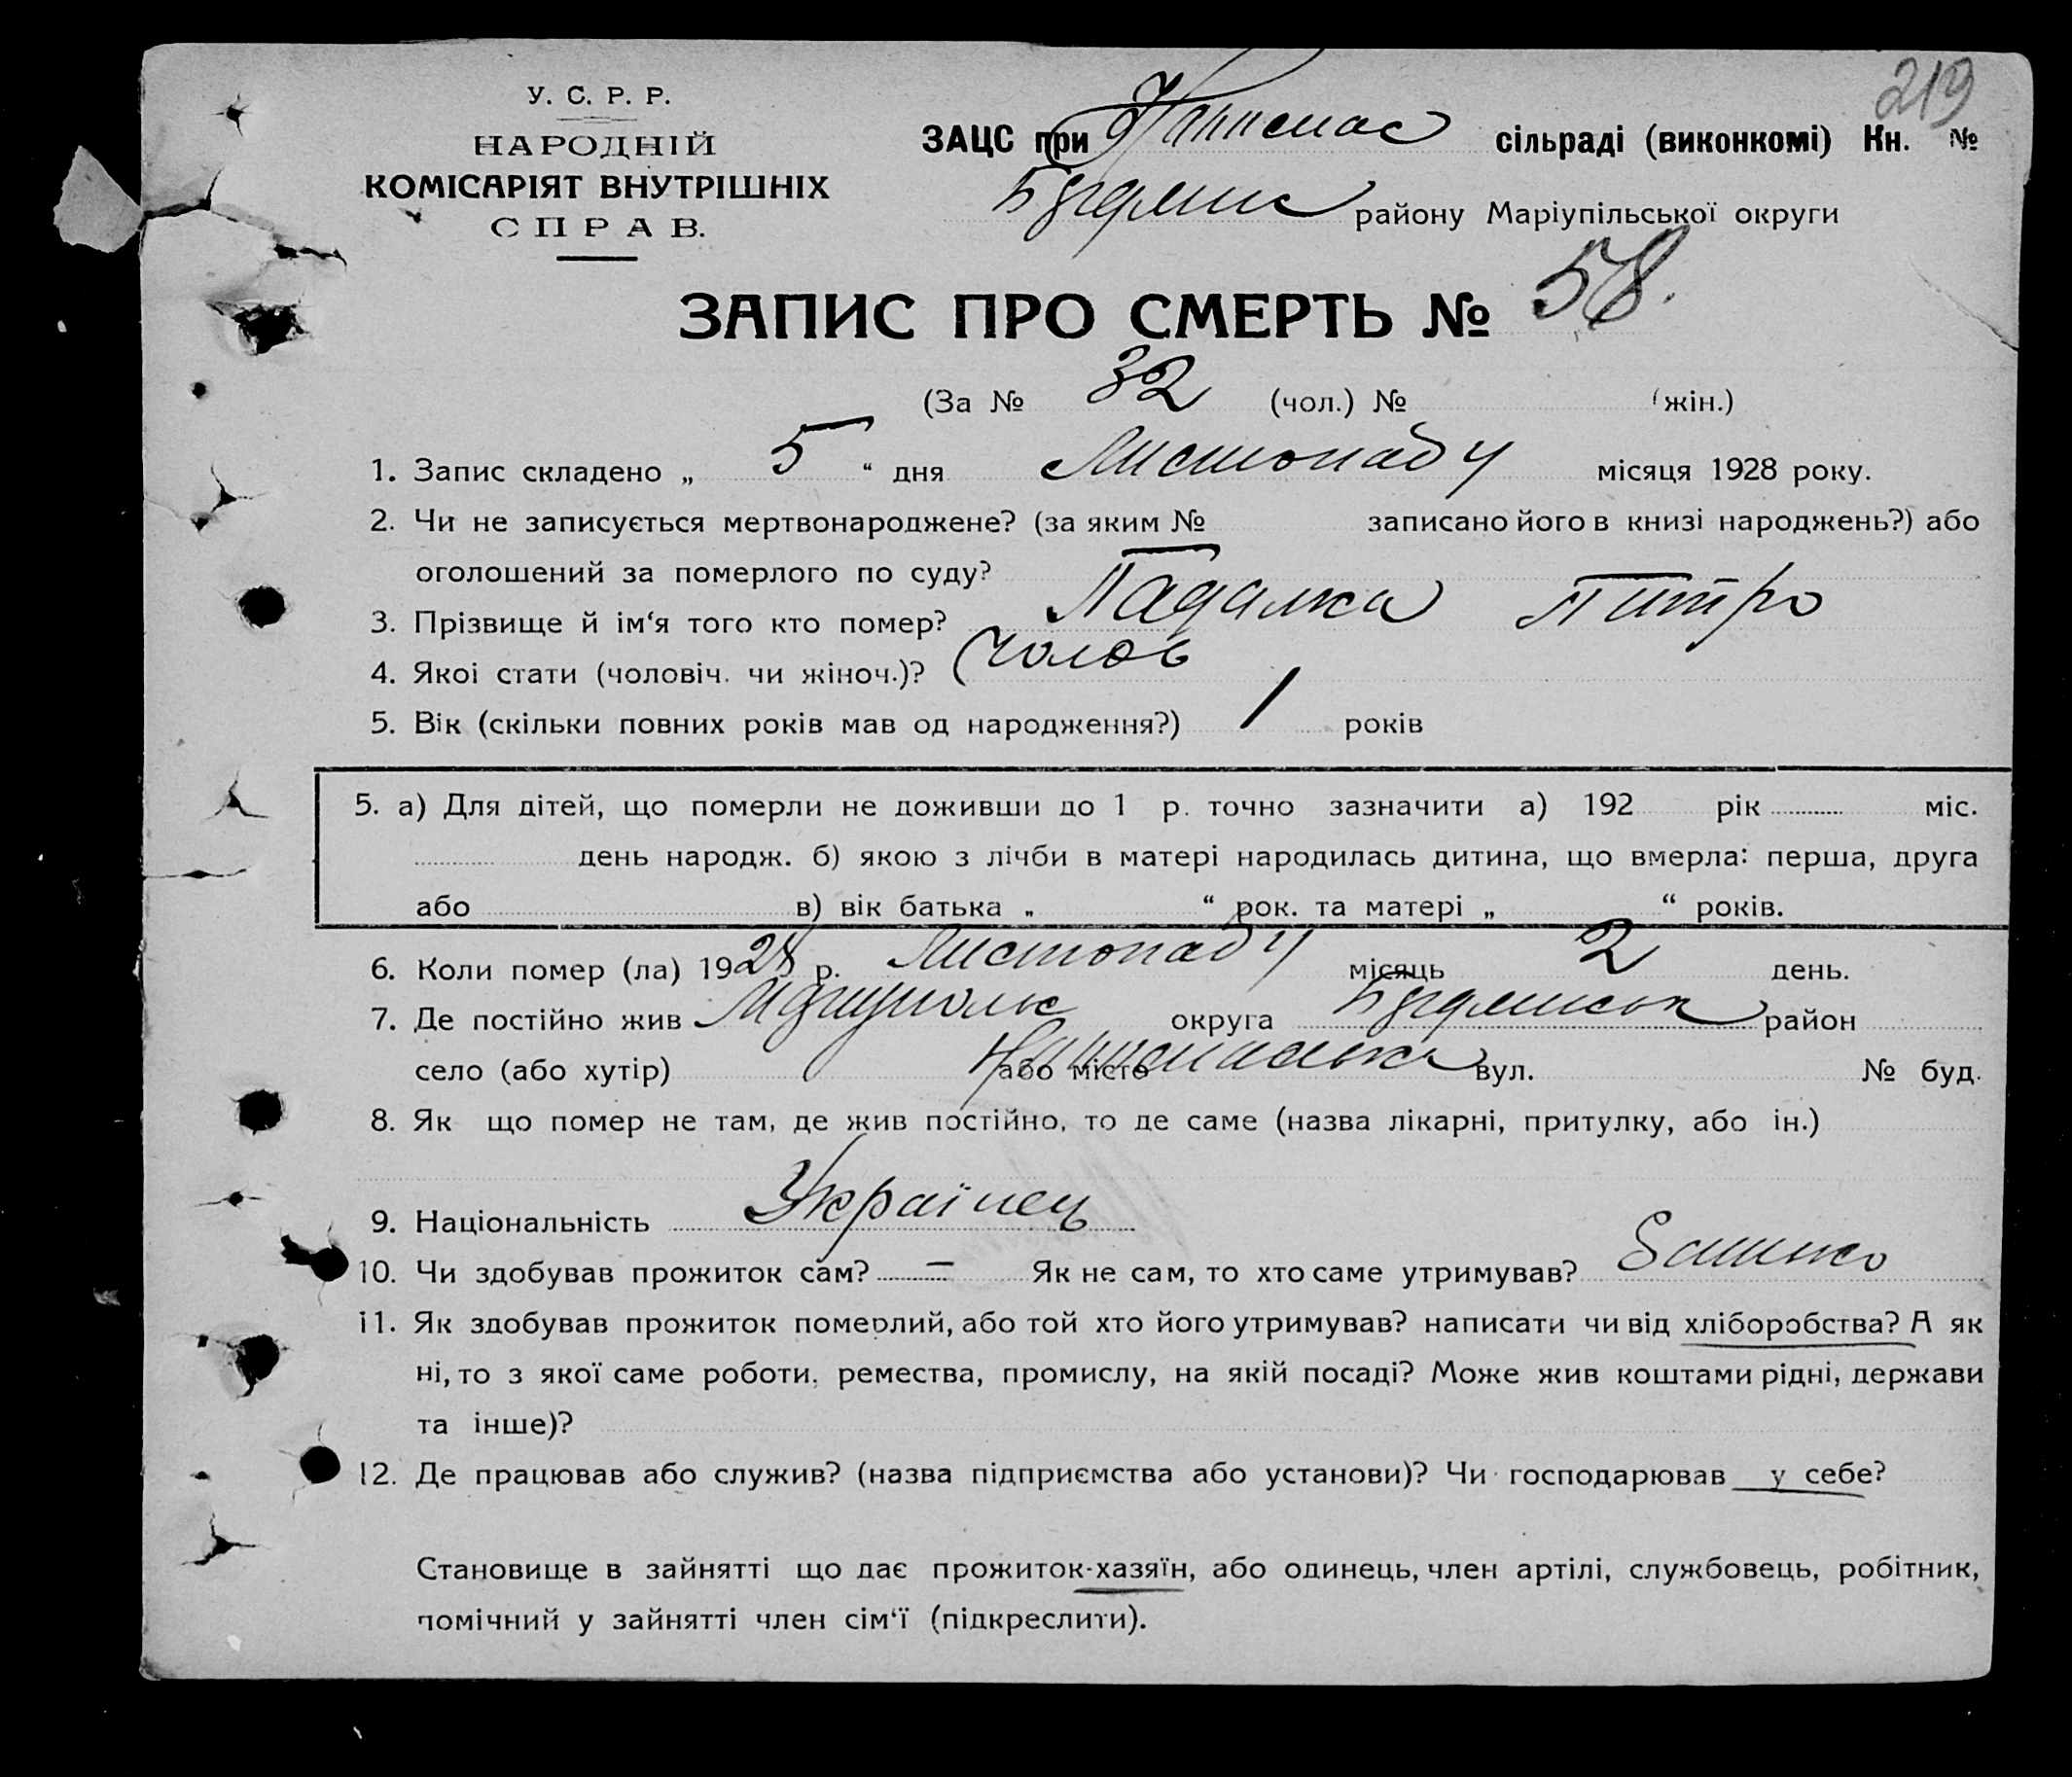 219
У. С. Р. Р.
НАРОДНІЙ
КОМІСАРІЯТ ВНУТРІШНІХ
СПРАВ.
ЗАЦС при сільраді (виконкомі) Кн. №
району Маріупільської округи
ЗАПИС ПРО СМЕРТЬ № 58.
(За № 32 (чол.) № (жін.)
1. Запис складено „ 5 “ дня Листопаду місяця 1928 року.
2. Чи не записується мертвонароджене? (за яким № записано його в книзі народжень?) або
оголошений за померлого по суду?
3. Прізвище й ім‘я того кто помер? Падалка Питро
4. Якоі стати (чоловіч. чи жіноч.)? Чолов
5. Вік (скільки повних років мав од народження?) 1 років
5. а) Для дітей, що померли не доживши до 1 р. точно зазначити а) 192 рік міс.
день народж. б) якою з лічби в матері народилась дитина, що вмерла: перша, друга
або в) вік батька „ “ рок. та матері „ “ років.
6. Коли помер (ла) 1928 р. Листопаду місяць 2 день.
7. Де постійно жив округа район
село (або хутір) або місто вул. № буд.
8. Як що помер не там, де жив постійно, то де саме (назва лікарні, притулку, або ін.)
9. Національність Українець
10. Чи здобував прожиток сам? — Як не сам, то хто саме утримував?
11. Як здобував прожиток померлий, або той хто його утримував? написати чи від хліборобства? А як
ні, то з якої саме роботи, ремества, промислу, на якій посаді? Може жив коштами рідні, держави
та інше)?
12. Де працював або служив? (назва підприємства або установи)? Чи господарював у себе?
Становище в зайнятті що дає прожиток-хазяїн, або одинець, член артілі, службовець, робітник,
помічний у зайнятті член сім‘ї (підкреслити).